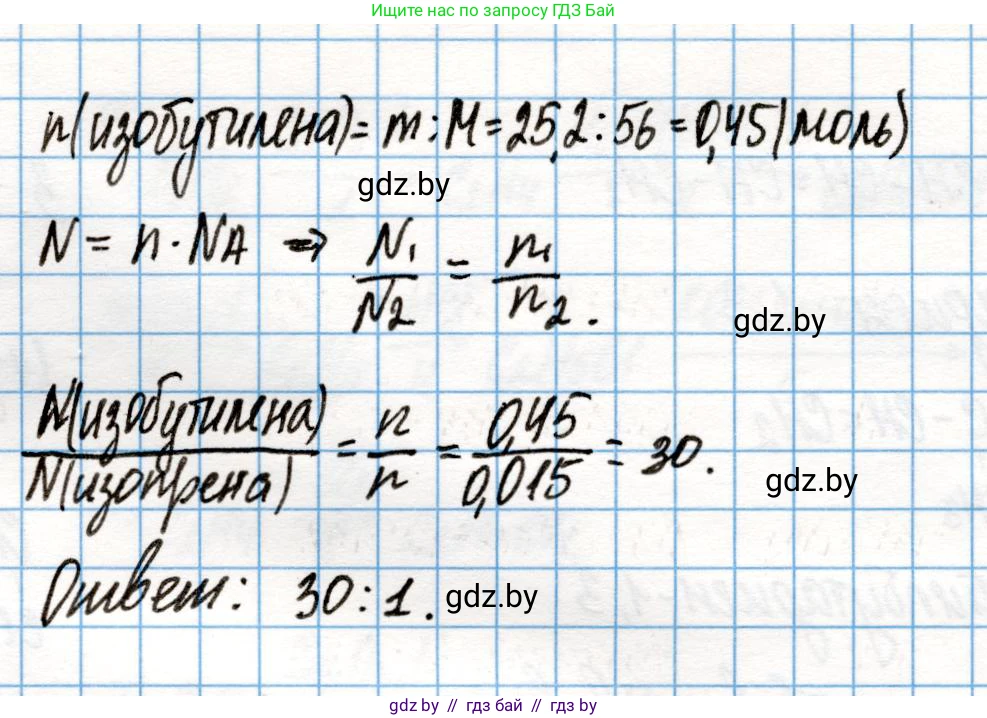 Ищите нас по запросу ГДЗ Бай
n(изобутилена) = m : M = 25,2 : 56 = 0,45 (моль)
gdz.by
N = n · NA ⇒ N1/N2 = n1/n2.
gdz.by
N(изобутилена)/N(изопрена) = n/n = 0,45/0,015 = 30.
gdz.by
Ответ: 30 : 1.
gdz.by
gdz.by // гдз бай // гдз by